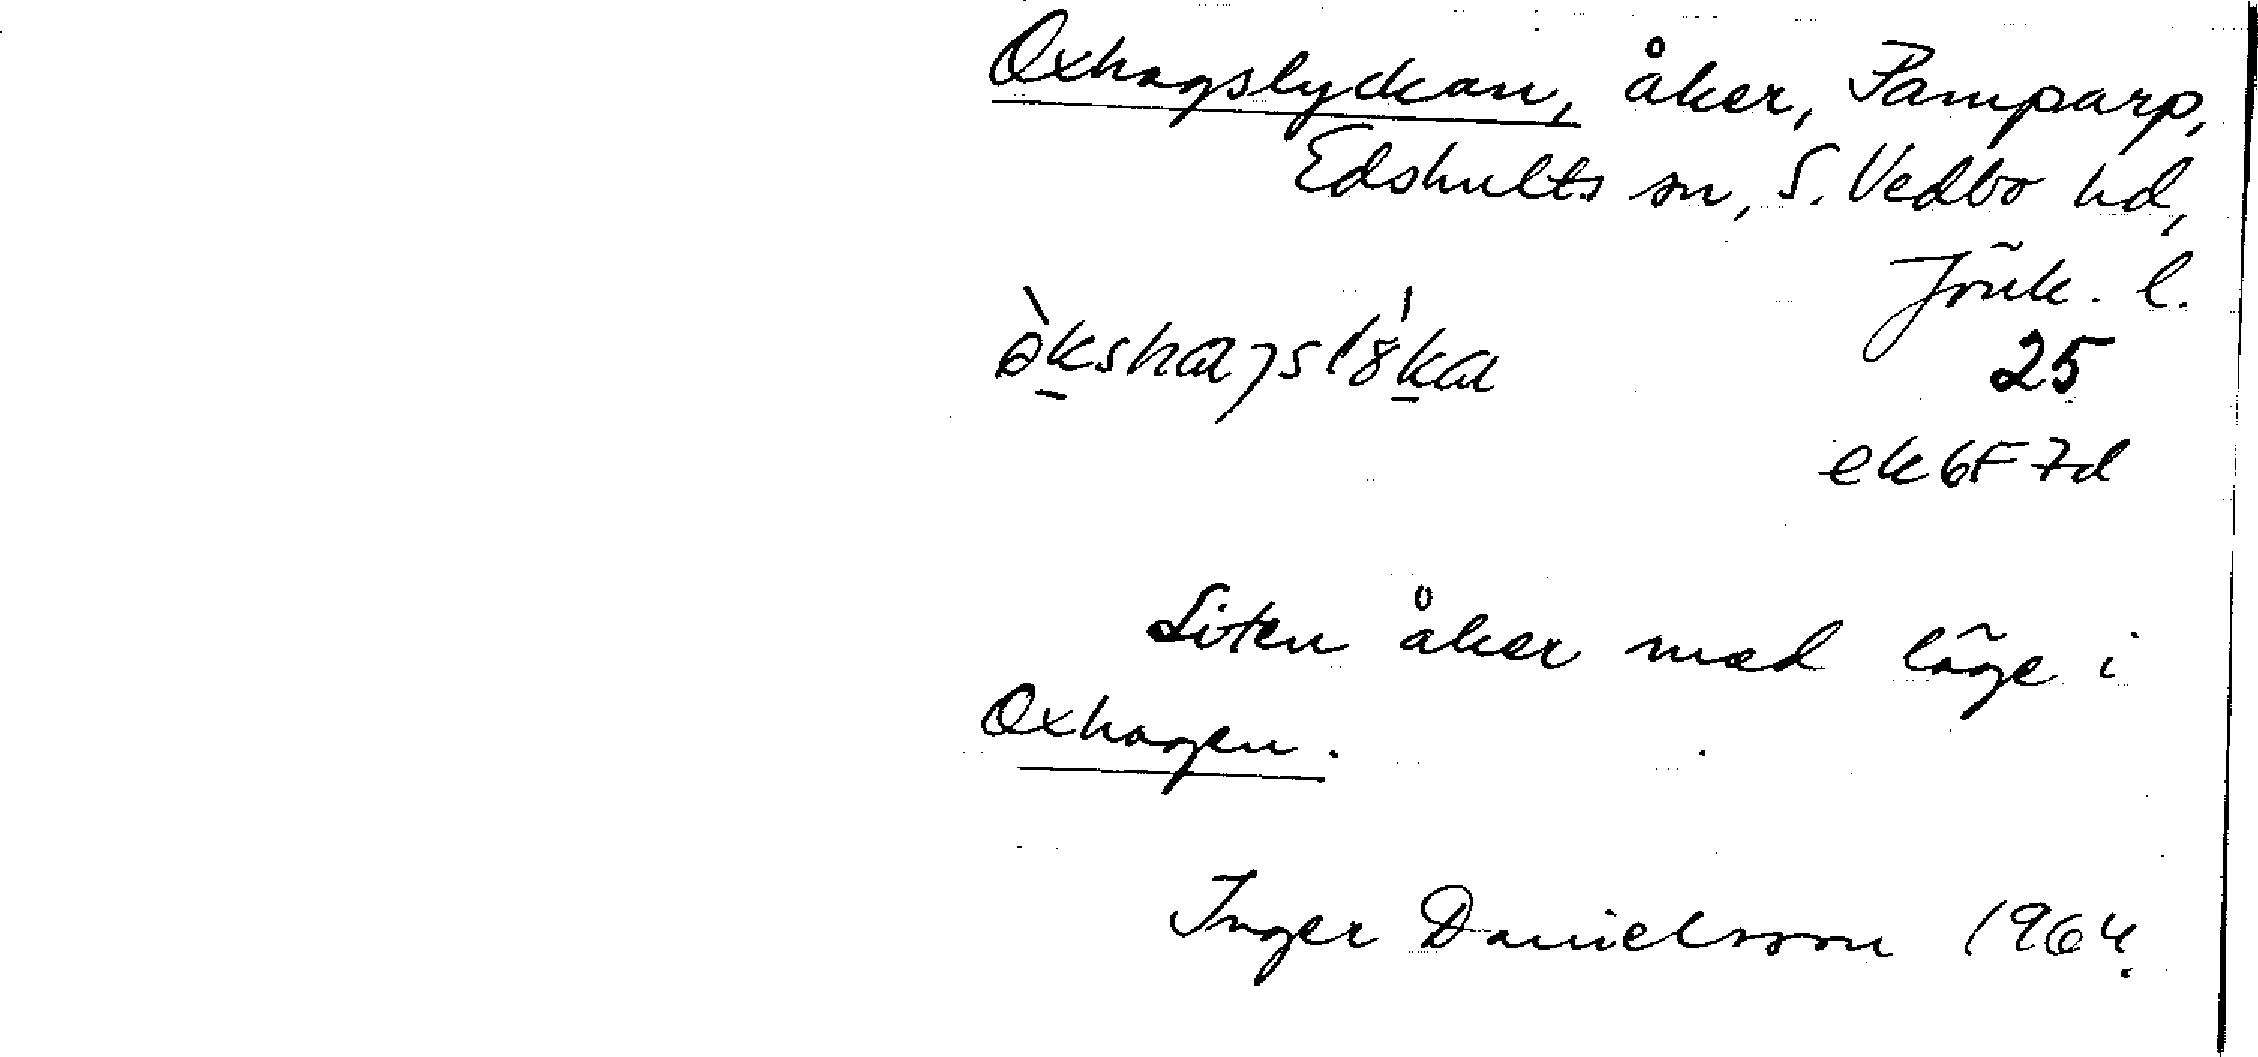 Oxhagslyckan, åker, Pamparp,
Edshults sn, S. Vedbo hd,
Jönk. l.
25
ek 6F 7d
Liten åker med läge i
Oxhagen.
Inger Danielsson 1964.